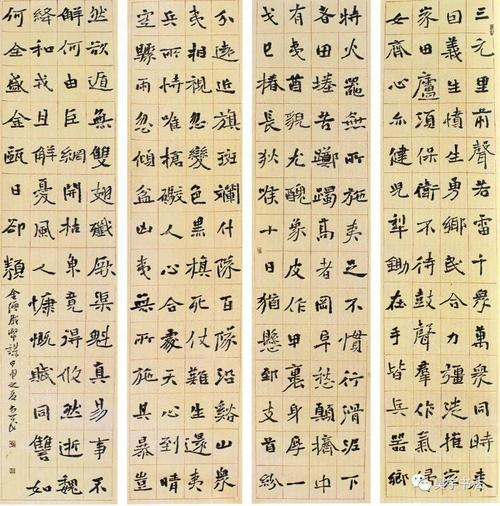 三元里前聲若雷千衆萬衆同時來
因義生憤生勇鄉民合力彊徒摧家
室田廬須保衛不待鼓聲羣作氣婦
女齊心亦健兒犁鋤在手皆兵器鄉
特火器無所施夷足不慣行滑泥下
者田塍苦躑躅高者岡阜愁顛擠中
有夷酋貌尤醜象皮作甲裹身厚一
戈已摏長狄喉十日猶懸郅支首紛
分遠近旗斑斕什隊百隊沿谿山衆
夷相視忽變色黑旗死仗難生還夷
兵所恃唯槍礮人心合處天心到晴
空驟雨忽傾盆凶夷無所施其暴豈
然欲遁無雙翅殲厥渠魁真易事不
解何由巨網開枯魚竟得攸然逝魏
絳和戎且解憂風人慷慨賦同讐如
何全盛金甌日卻類金繒歲幣謀甲申之
书法